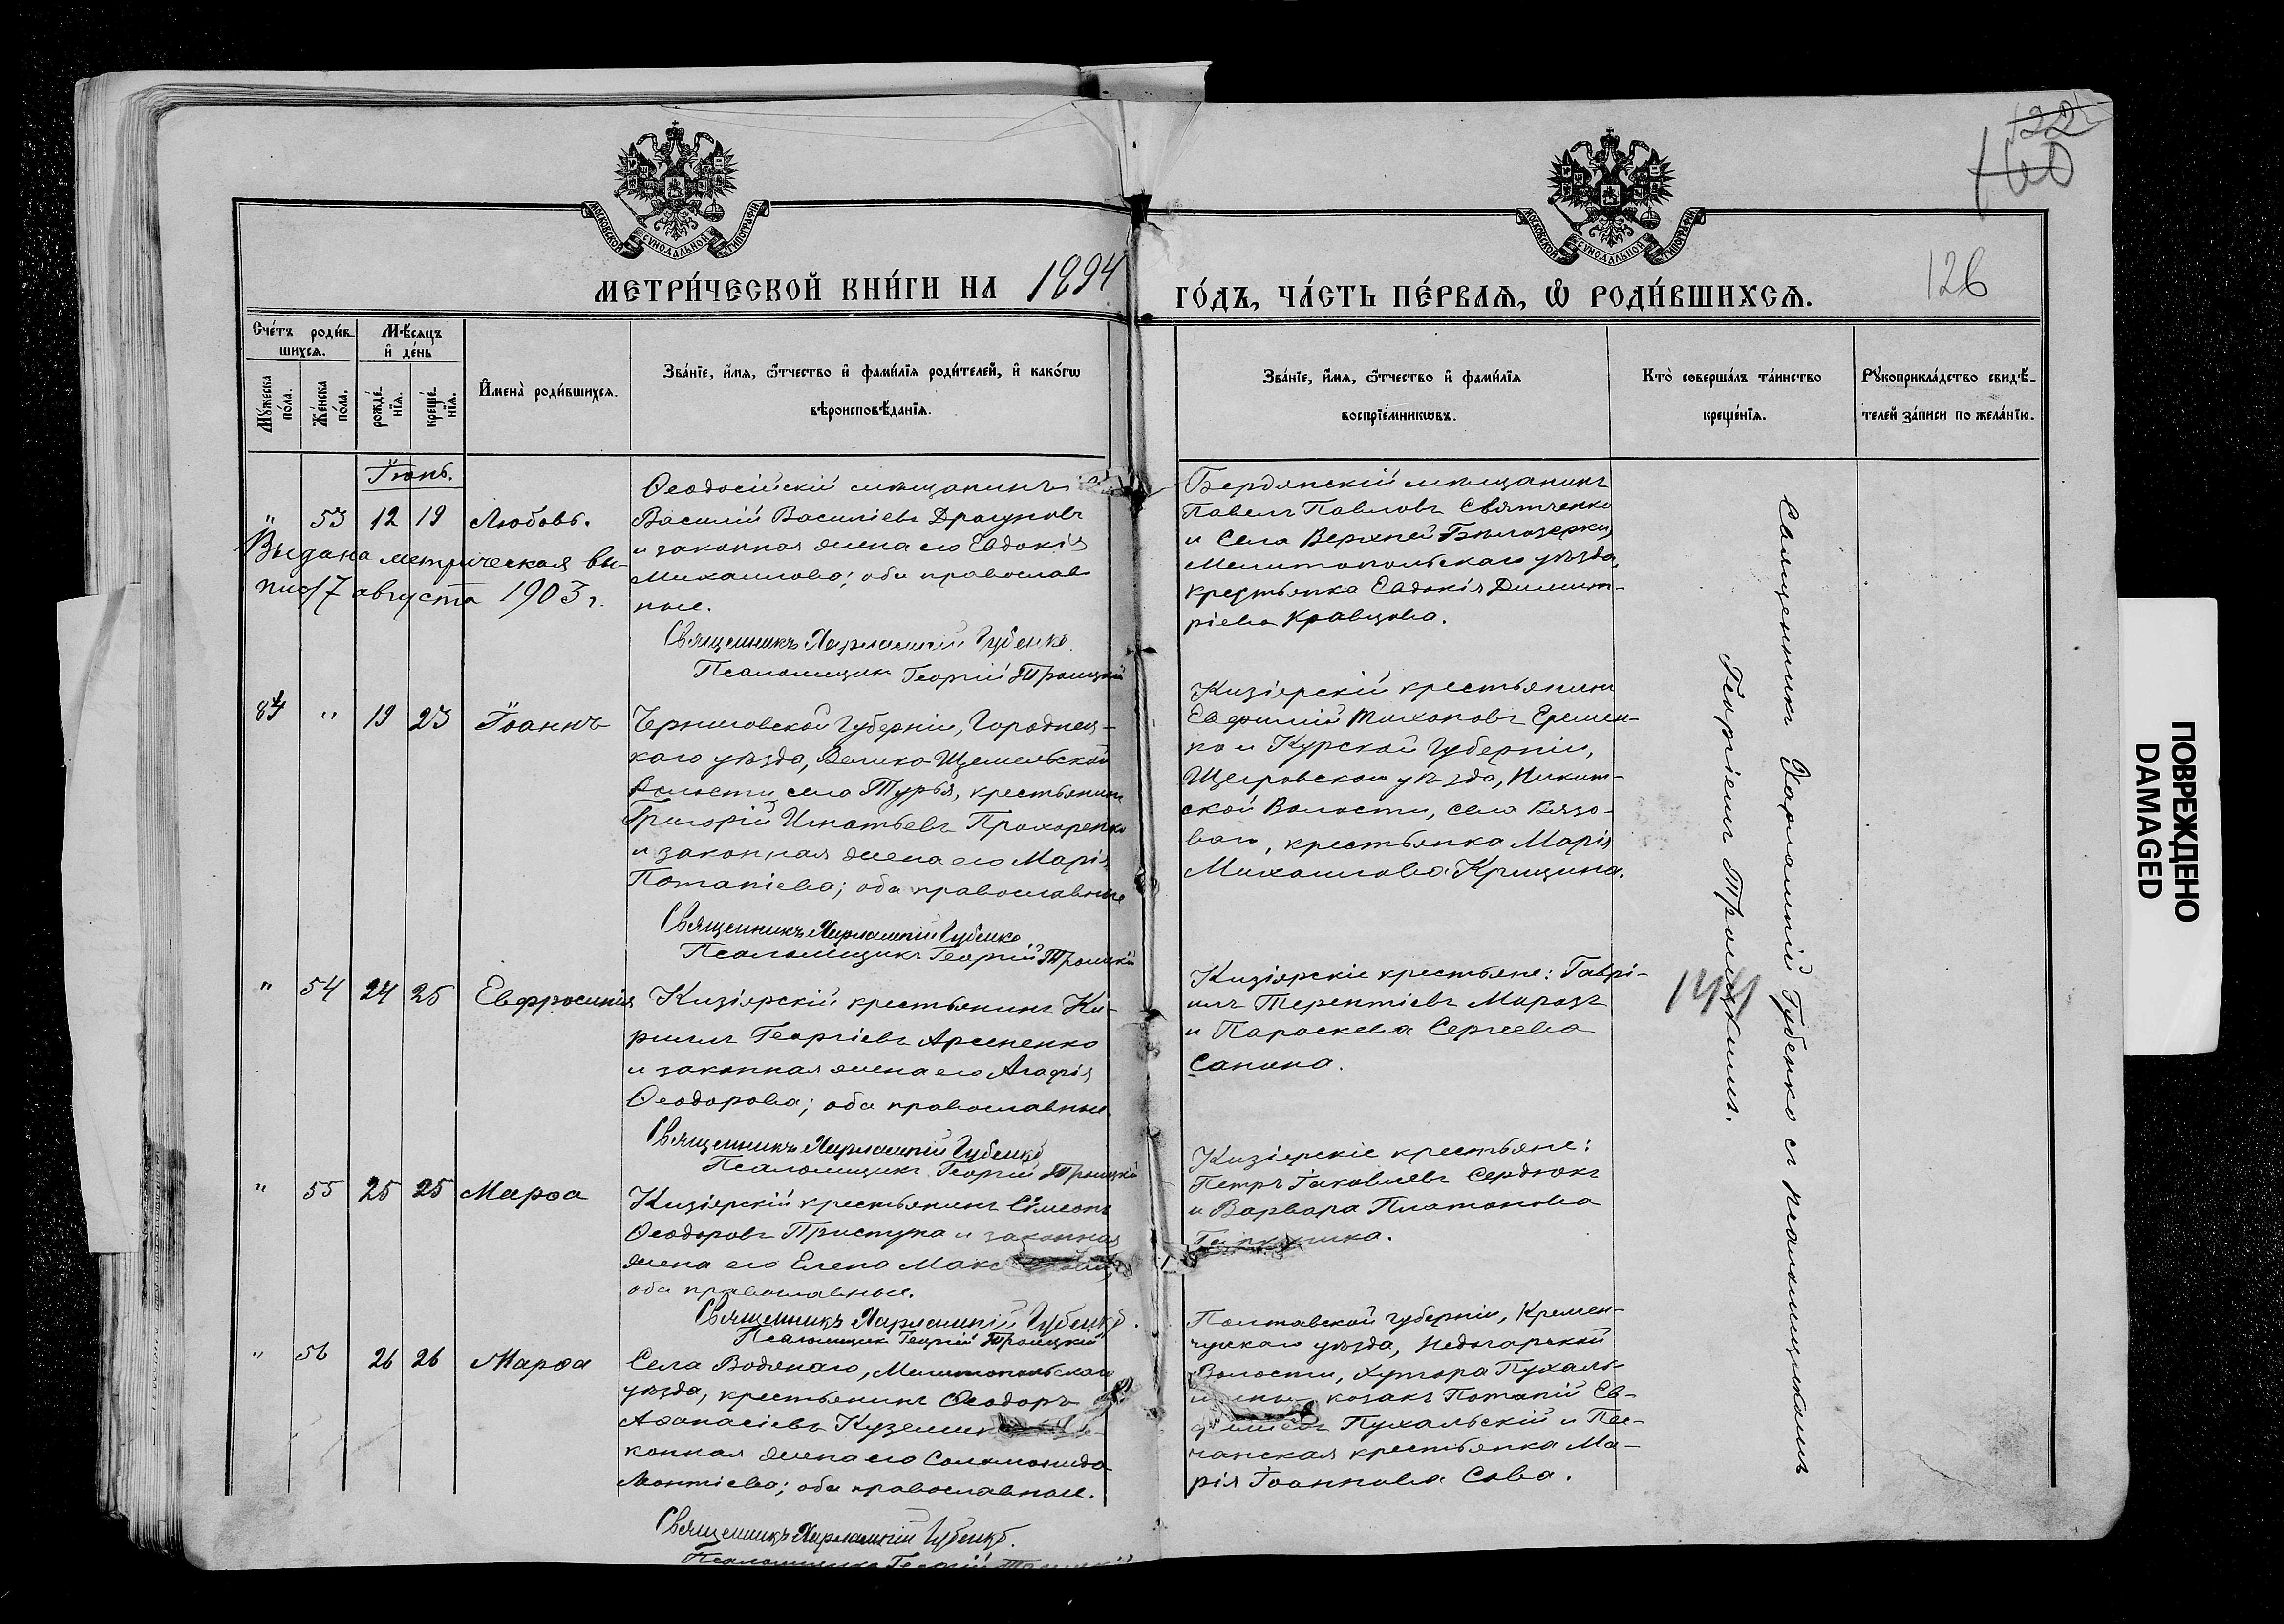 122
160
МОСКОВСКОЙ СѴНОДАЛЬНОЙ ТИПОГРАФІИ
МОСКОВСКОЙ СѴНОДАЛЬНОЙ ТИПОГРАФІИ
МЕТРИ́ЧЕСКОЙ КНИ́ГИ НА 1894
ГО́ДЪ, ЧА́СТЬ ПЕ́РВАЯ, Ѡ҆ РОДИ́ВШИХСѦ.
126
Сче́тъ роди́в-
шихсѧ.
Мѣ́сѧцъ
и҆ де́нь
Мꙋ́жеска
по́ла.
Же́нска
по́ла.
рожде́-
нїѧ.
креще́-
нїѧ.
И҆мена̀ роди́вшихсѧ.
Зва́нїе, и҆́мѧ, ѻ҆́тчество и҆ фами́лїѧ роди́телей, и҆ како́гѡ
вѣроисповѣ́данїѧ.
Зва́нїе, и҆́мѧ, ѻ҆́тчество и҆ фами́лїѧ
воспрїе́мникѡвъ.
Кто̀ соверша́лъ та́инство
креще́нїѧ.
Рꙋкоприкла́дство свидѣ́-
телей за́писи по жела́нїю.
Іюнь.
" 53 12 19 Любовь.
Ѳеодосійскій мѣщанинъ
Василій Васильевъ Драгуновъ
и законная жена его Евдокія
Михаилова; оба православ
ные.
Выдана метрическая вы-
пись 17 августа 1903 г.
Священникъ Харлампій Губенко
Псаломщикъ Георгій Троицкій
Бердянскій мѣщанинъ
Павелъ Павловъ Святченко
и Села Верхней Бѣлозерки,
Мелитопольскаго уѣзда,
крестьянка Евдокія Димит-
ріева Кравцова.
84 " 19 23 Іоаннъ
Черниговской Губерніи, Городнец-
каго уѣзда, Велико Щемельской
Волости, села Турья, крестьянинъ
Григорій Игнатьевъ Прохоренко
и законная жена его Марія
Потапіева; оба православные
Священникъ Харлампій Губенко
Псаломщикъ Георгій Троицкій
Кизіярскій крестьянинъ
Евфимій Тихоновъ Еремен-
ко и Курской Губерніи,
Щегровскаго уѣзда, Никит-
ской Волости, села Вязо-
ваго, крестьянка Марія
Михаилова Крицина.
" 54 24 25 Евфросинія
Кизіярскій крестьянинъ Ки-
риллъ Георгіевъ Арсененко
и законная жена его Агафія
Ѳеодорова; оба православные.
Священникъ Харлампій Губенко
Псаломщикъ Георгій Троицкій
Кизіярскіе крестьяне: Гаврі-
илъ Терентіевъ Морозъ
и Параскева Сергеева
Санина.
" 55 25 25 Марѳа
Кизіярскій крестьянинъ Сѵмеонъ
Ѳеодоровъ Приступа и законная
жена его Елена Макс
оба православные.
Священникъ Харлампій Губенко.
Псаломщикъ Георгій Троицкій
Кизіярскіе крестьяне:
Петръ Іаковлевъ Сердюкъ
и Варвара Платонова
" 56 26 26 Марѳа
Села Водянаго, Мелитопольскаго
уѣзда, крестьянинъ Ѳеодоръ
Аѳанасіевъ
конная жена его Соломонида
Леонтіева; оба православные.
Священникъ Харлампій Губенко.
Псаломщикъ Георгій Троицкій
Полтавской губерніи, Кремен-
чугскаго уѣзда, Недогарской
Волости, Хутора Пухаль-
козакъ Потапій Ев-
фиміевъ Пухальскій и Пес-
чанская крестьянка Ма-
рія Іоаннова Сова.
Священникъ Харлампій Губенко съ псаломщикомъ
Георгіемъ Троицкимъ.
144
ПОВРЕЖДЕНО
DAMAGED